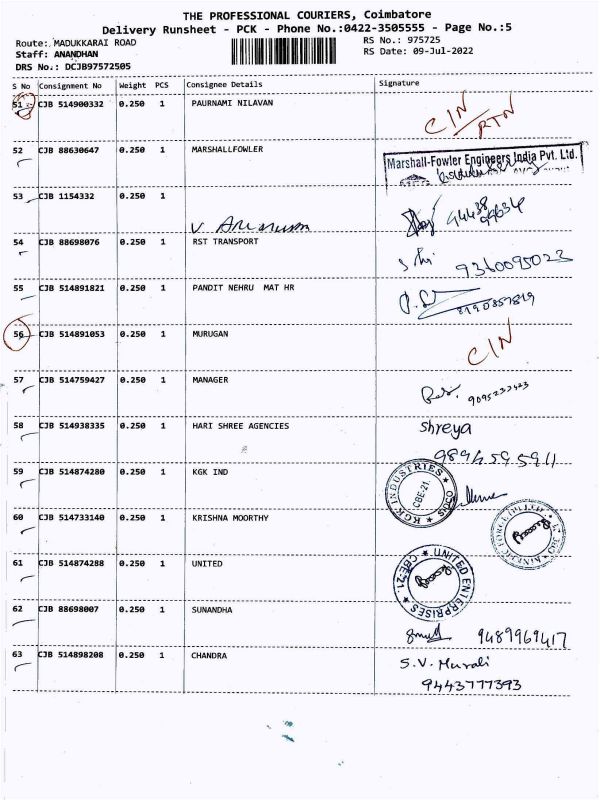 THE PROFESSIONAL COURIERS, Coimbatore
Delivery Runsheet - PCK - Phone No.:0422-3505555 - Page No.:5
Route: MADUKKARAI ROAD RS No.: 975725
Staff: ANANDHAN RS Date: 09-Jul-2022
DRS No.: DCJB97572505
S No Consignment No Weight PCS Consignee Details Signature
51 CJB 514900332 0.250 1 PAURNAMI NILAVAN
C/N
RTN
52 CJB 88630647 0.250 1 MARSHALLFOWLER
Marshall-Fowler Engineers India Pvt. Ltd.
53 CJB 1154332 0.250 1
54 CJB 88698076 0.250 1 RST TRANSPORT
9360095023
55 CJB 514891821 0.250 1 PANDIT NEHRU MAT HR
56 CJB 514891053 0.250 1 MURUGAN
C/N
57 CJB 514759427 0.250 1 MANAGER
9095233423
58 CJB 514938335 0.250 1 HARI SHREE AGENCIES
Shreya
9894595911
59 CJB 514874280 0.250 1 KGK IND
KGK INDUSTRIES
CBE-21.
SIDCO
60 CJB 514733140 0.250 1 KRISHNA MOORTHY
61 CJB 514874288 0.250 1 UNITED
UNITED ENTERPRISES
CBE-21.
62 CJB 88698007 0.250 1 SUNANDHA
9489969417
63 CJB 514898208 0.250 1 CHANDRA
S.V. Murali
9443777393